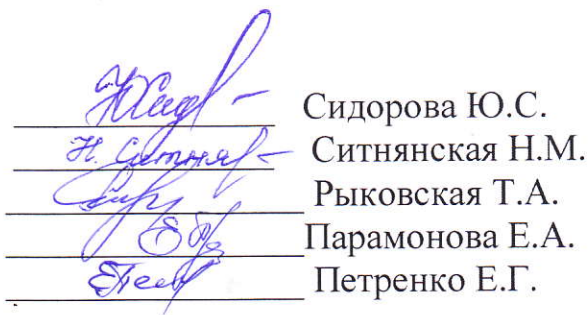 Сидорова Ю.С.
Н. Ситня Ситнянская Н.М.
Рыковская Т.А.
Парамонова Е.А.
Петренко Е.Г.